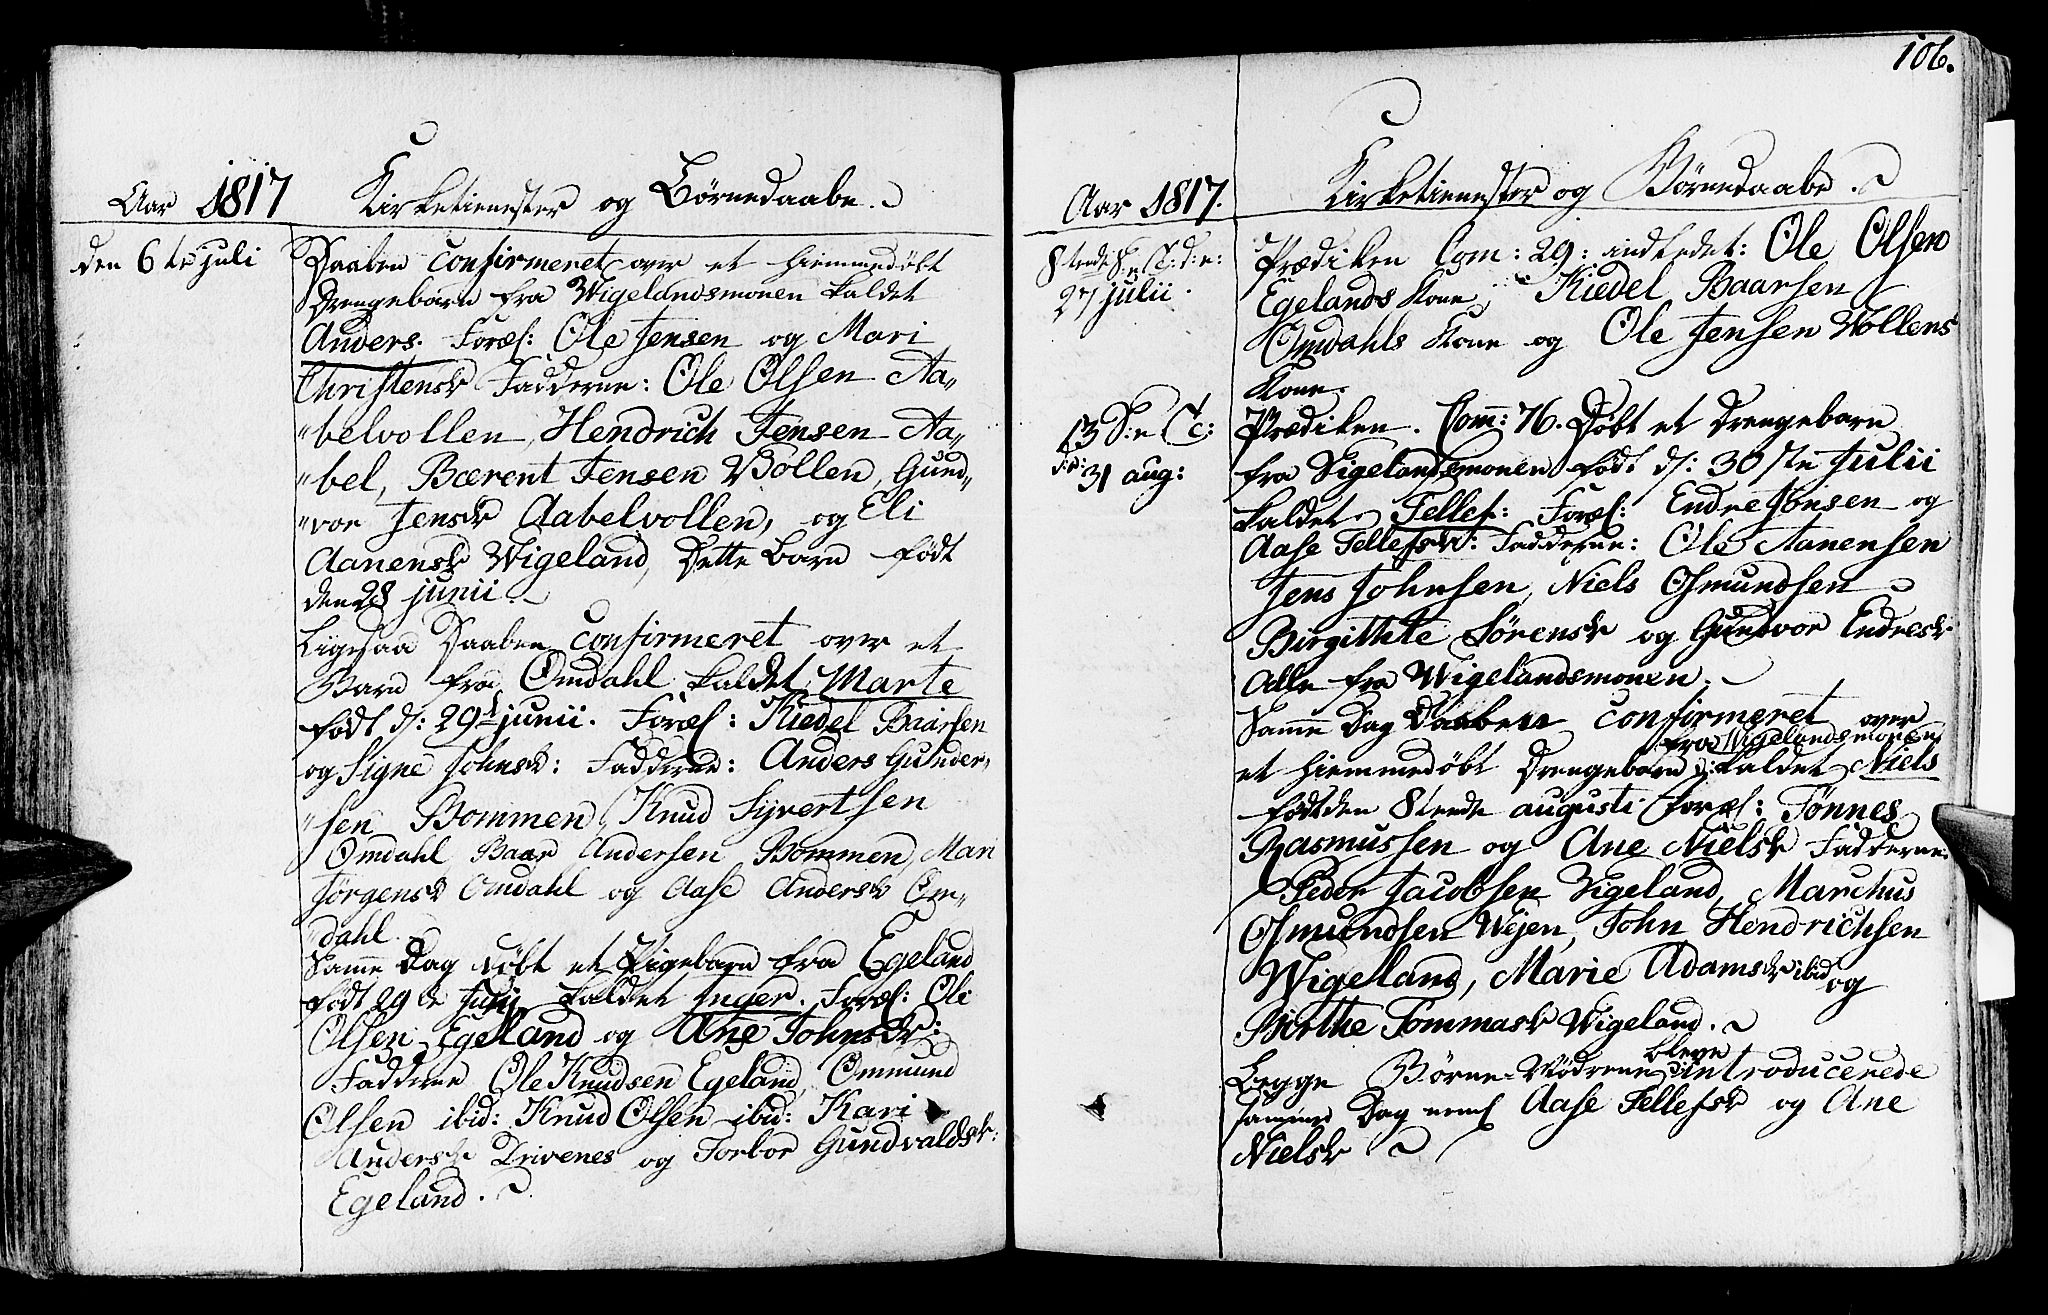 Aar 1817 Kirketienester og Børnedaabe.
den 6te juli Daaben Confirmeret over et hiemmedøbt
Drengebarn fra Wigelandsmonen kaldet
Anders. Foræl: Ole Jensen og Mari
Christensd Fadderne: Ole Olsen Aa„
„belvollen, Hendrich Jensen Aa„
„bel, Bærent Jensen Vollen, Gund„
„vor Jensd Aabelvollen, og Eli
Aanensd Wigeland, Dette Barn født
den 28 junii.
Ligesaa Daaben Confirmeret over et
Barn fra Omdahl kaldet Marte
født d: 29d junii. Foræl: Kiedel Baarsen
og Signe Johnsd: Fadderne: Anders Gunder„
„sen Bommen, Knud Syvertsen
Omdahl Baar Andersen Bommen, Mari
Jørgensd Omdahl og Aase Andersd Om„
„dahl.
Samme Dag døbt et Pigebarn fra Egeland
født 29de Junii kaldet Inger. Foræl: Ole
Olsen Egeland og Ane Johnsd:
Fadderne Ole Knudsen Egeland, Ommund
Olsen ibid: Knud Olsen ibid: Kari
Andersd Drivenes og Torbor Gundvaldsd:
Egeland.
106.
Aar 1817. Kirketienester og Børnedaabe.
8tende S: e T: d: e: Prædiken Com: 29: indledet: Ole Olsen
27 julii. Egelands Kone, Kiedel Baarsen
Omdahls Kone og Ole Jensen Vollens
Kone.
13 S: e T: Prædiken. Com: 76. Døbt et Drengebarn
d: e: 31 aug: fra Vigelandsmonen født d: 30ste Julii
kaldet Tellef: Foræl: Endre Jonsen og
Aase Tellefsd: Fadderne: Ole Aanensen
Jens Johnsen, Niels Osmundsen
Birgithte Sørensd og Gundvor Endresd
Alle fra Wigelandsmonen.
Samme Dag Daaben Confirmeret over
fra Wigelandsmonen
et hiemmedøbt Drengebarn kaldet Niels
født den 8tende augusti Foræl: Tønnes
Rasmussen og Ane Nielsd Fadderne:
Peder Jacobsen Vigeland, Marchus
Osmundsen Wejen, John Hendrichsen
Wigeland, Marie Adamsd ibid og
Birthe Tommasd Wigeland.
bleve
Begge Børne-Mødrene introducerede
samme Dag neml Aase Tellefsd og Ane
Nielsd